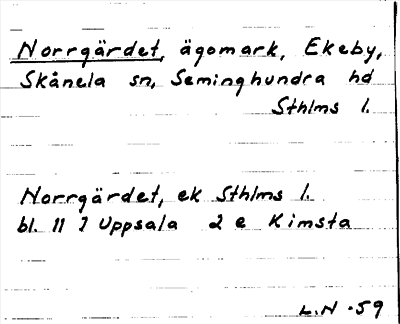 Norrgärdet, ägomark, Ekeby,
Skånela sn, Seminghundra hd
Sthlms l.
Norrgärdet, ek Sthlms l.
bl. 11 I Uppsala 2 e Kimsta
L.N -59